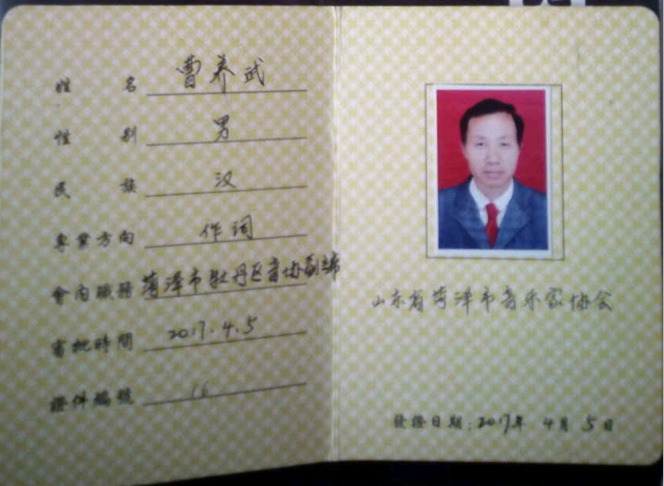 姓 名 曹养武
性 别 男
民 族 汉
專業方向 作词
會内職務 菏泽市牡丹区音协副主席
審批時間 2017.4.5
證件編號 16
山东省菏泽市音乐家协会
發證日期:2017年 4月 5日